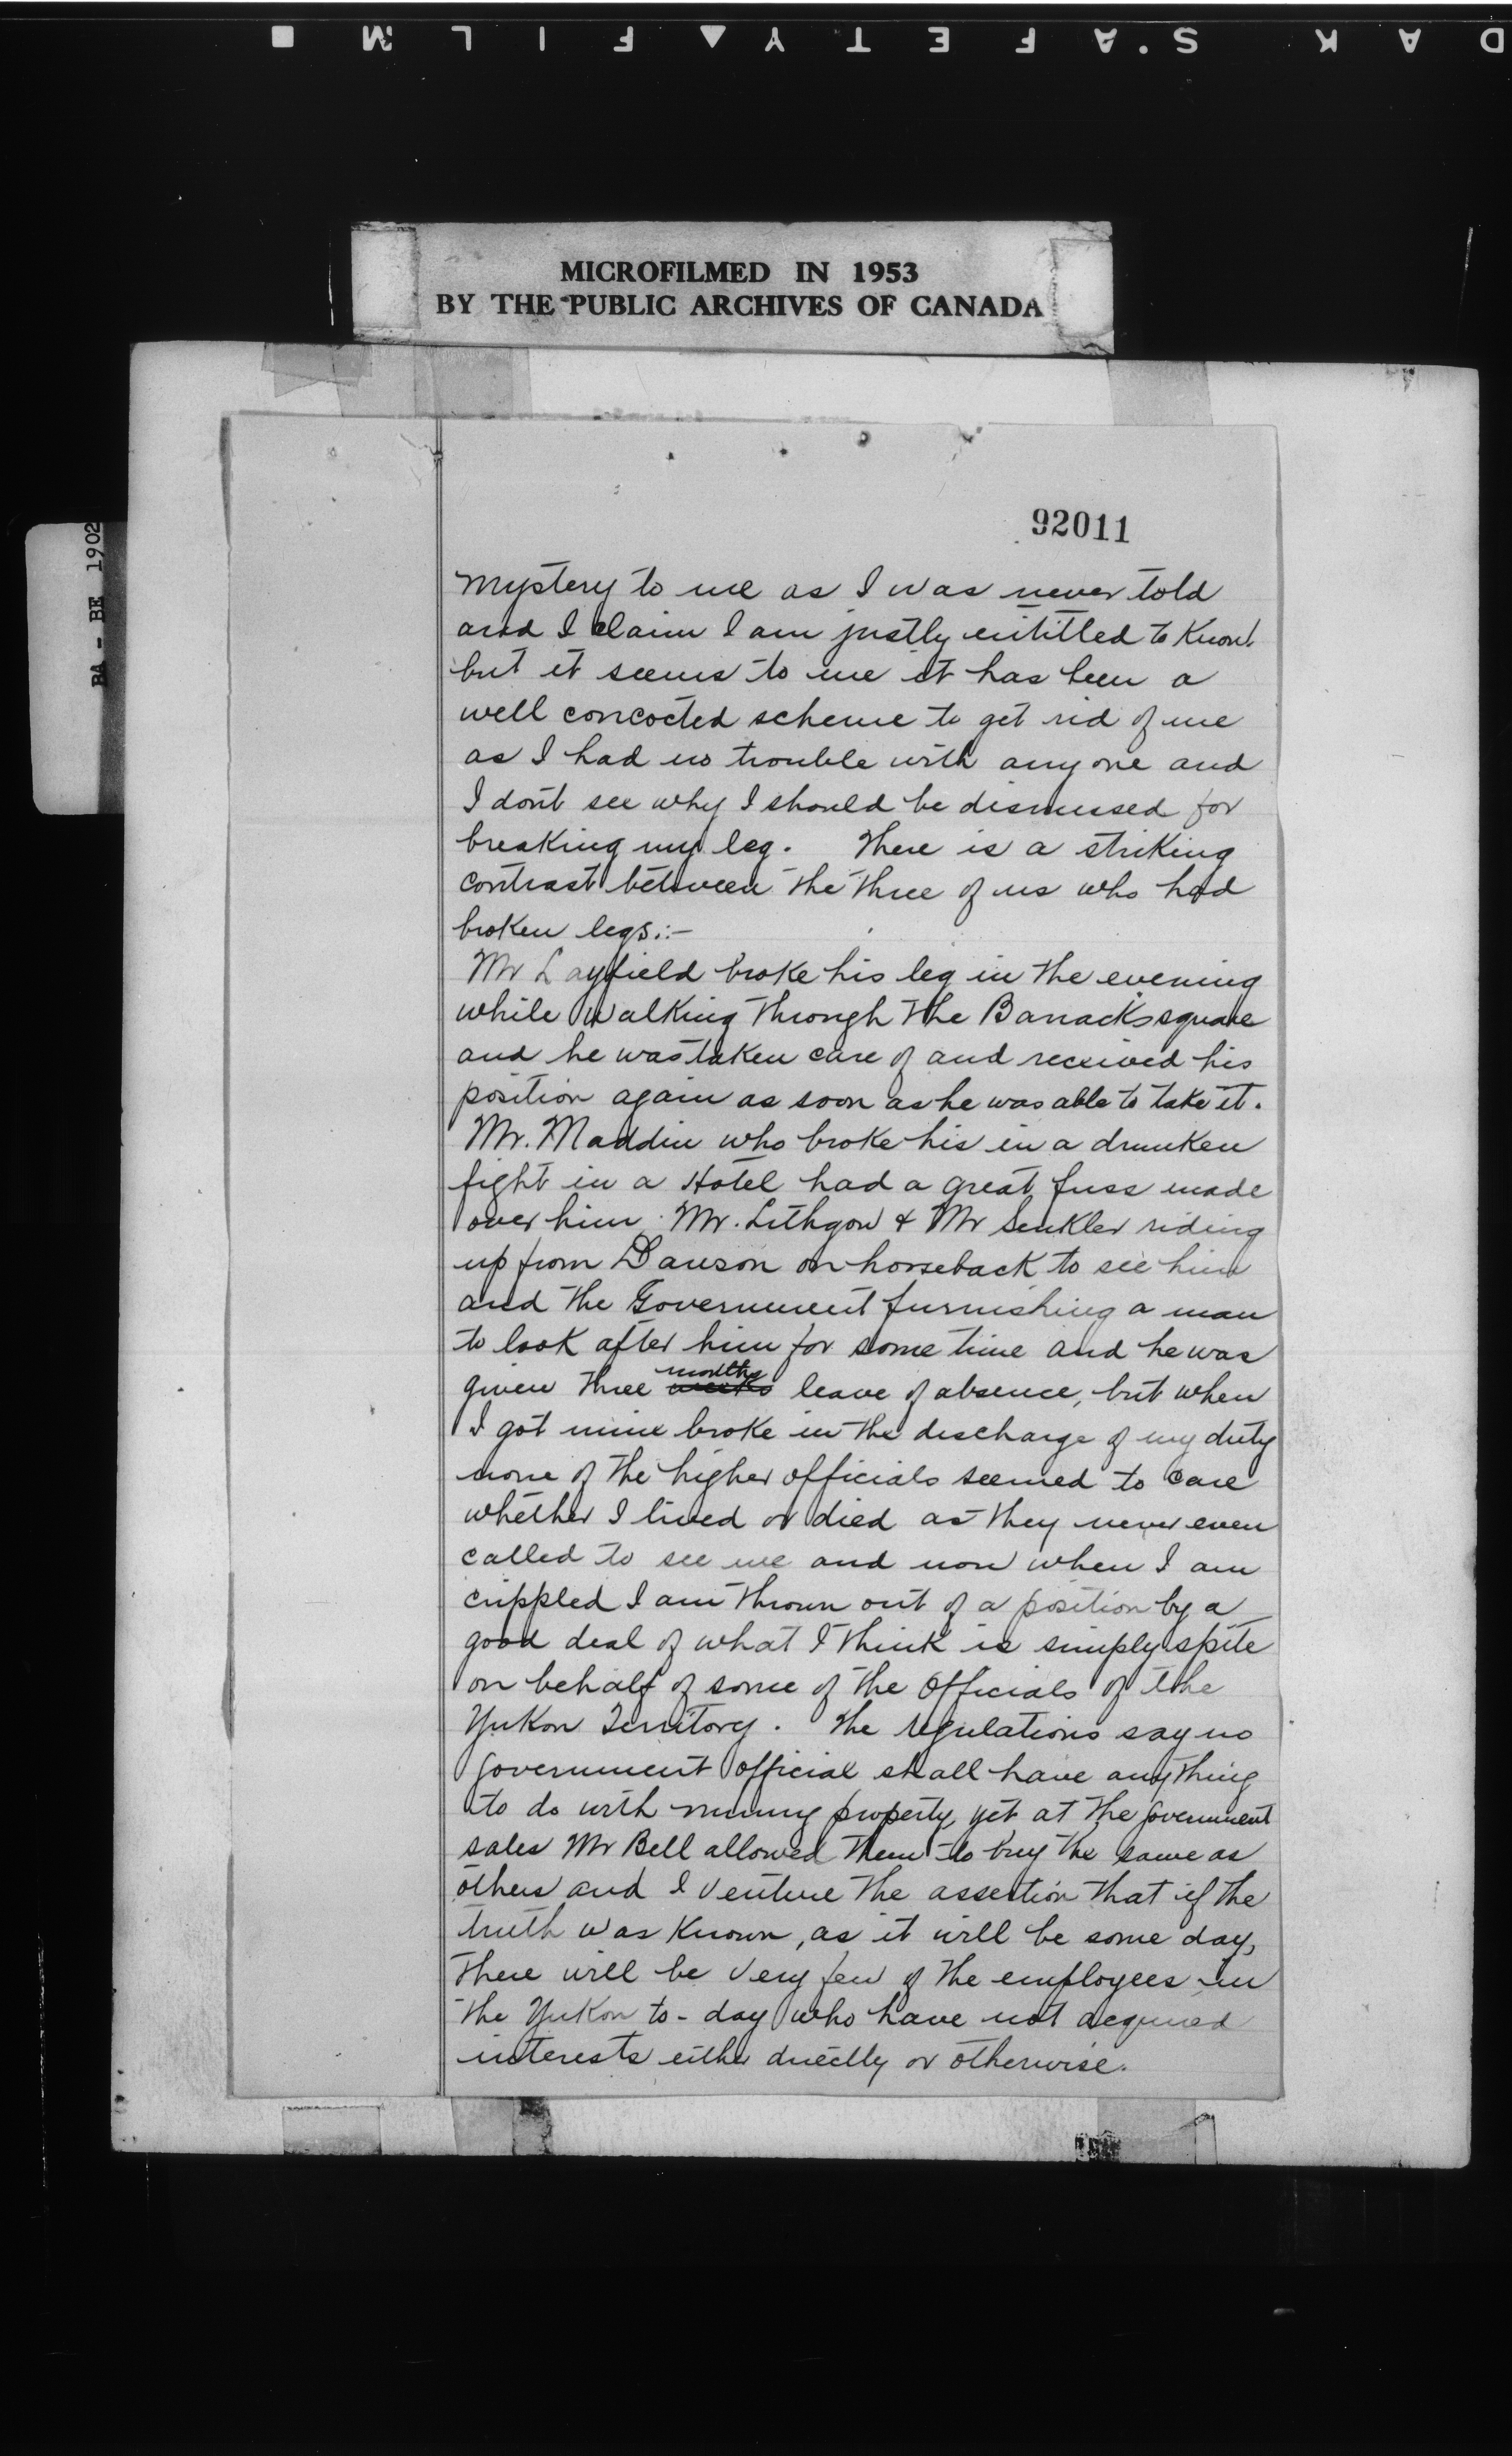 KODAK'S.A.F E T Y ▲ F I L M ■
MICROFILMED IN 1953
BY THE PUBLIC ARCHIVES OF CANADA
BA - BE 1902
92011
mystery to me as I was never told
and I claim I am justly entitled to Know.
but it seems to me it has been a
well concocted scheme to get rid of me
as I had no trouble with any one and
I dont see why I should be dismissed for
breaking my leg. There is a striking
contrast between the three of us who had
broken legs:-
Mr Layfield broke his leg in the evening
while walking through the Barracks square
and he was taken care of and received his
position again as soon as he was able to take it.
Mr. Maddin who broke his in a drunken
fight in a Hotel had a great fuss made
over him. Mr. Lithgow & Mr Senkler riding
up from Dawson on horseback to see him
and the Government furnishing a man
to look after him for some time and he was
given three weeks months leave of absence, but when
I got mine broke in the discharge of my duty
none of the higher officials seemed to care
whether I lived or died as they never even
called to see me and now when I am
crippled I am thrown out of a position by a
good deal of what I think is simply spite
on behalf of some of the Officials of the
Yukon Territory. The regulations say no
Government official shall have anything
to do with mining property, yet at the Government
sales Mr Bell allowed them to buy the same as
others and I venture the assertion that if the
truth was Known, as it will be some day,
there will be very few of the employees in
the Yukon to-day who have not acquired
interests either directly or otherwise.